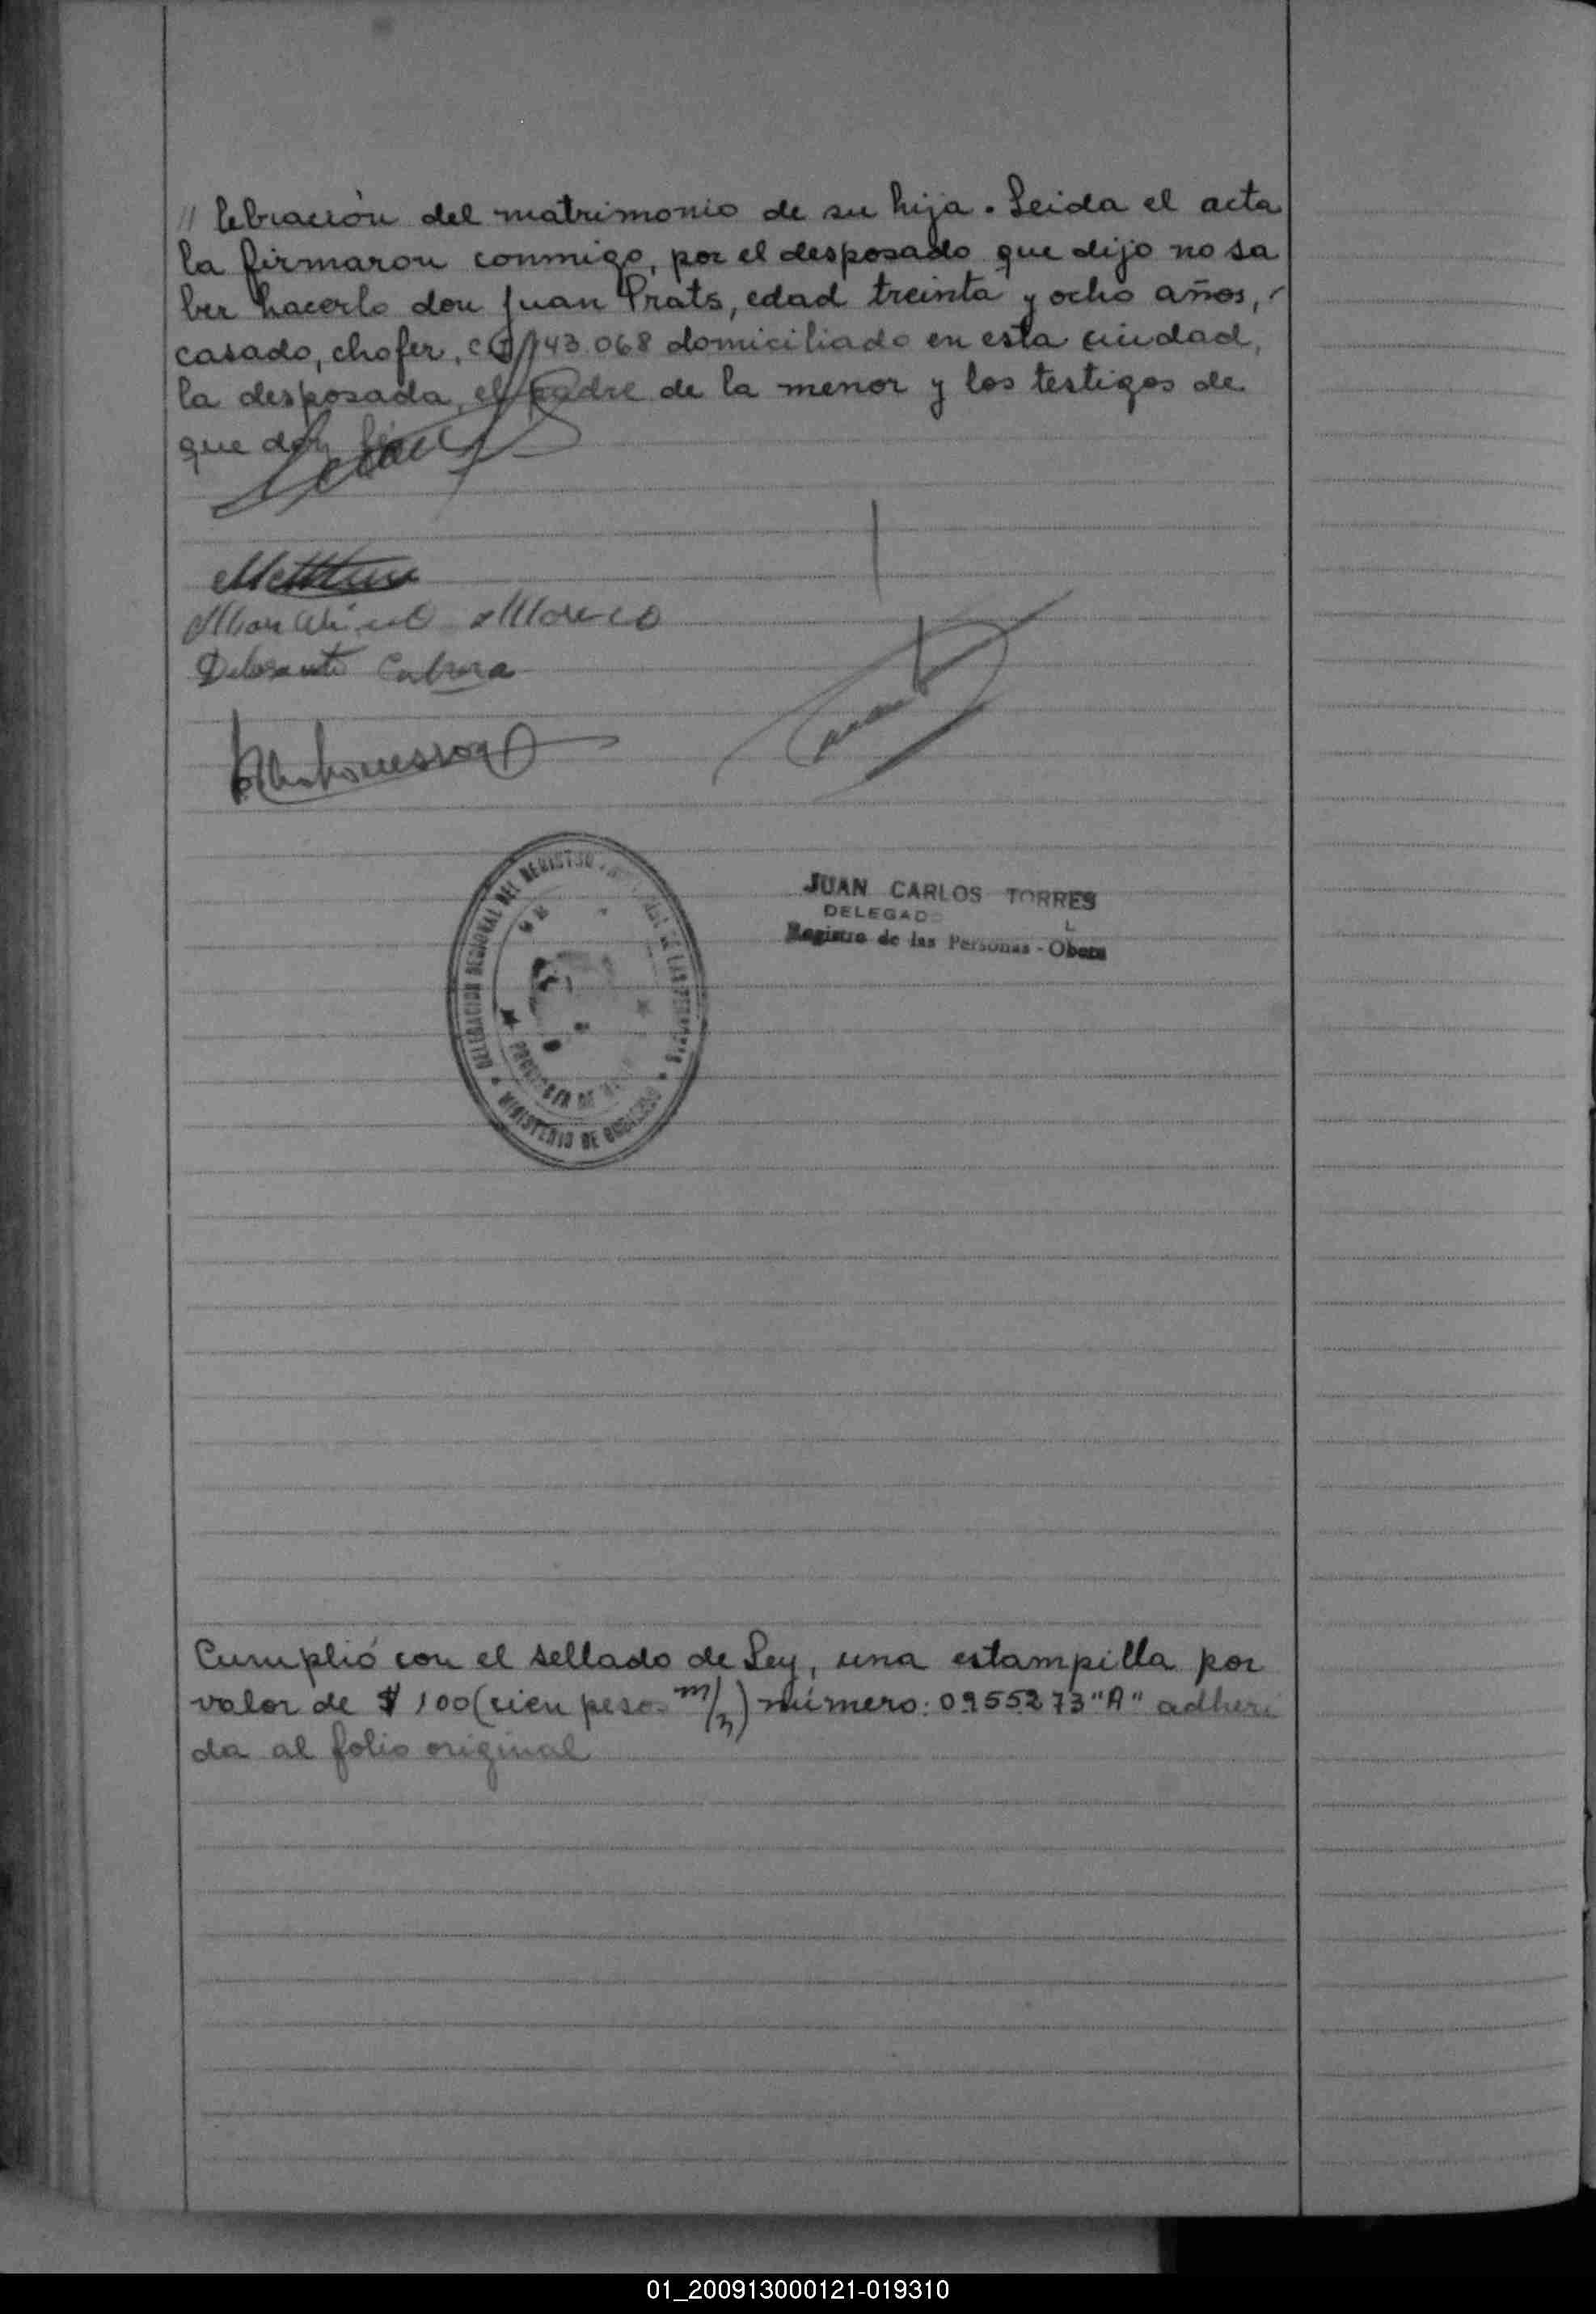 // lebración del matrimonio de su hija. Leida el acta
la firmaron conmigo, por el desposado que dijo no sa
ber hacerlo don Juan Prats, edad treinta y ocho años,
casado, chofer, 143.068 domiciliado en esta ciudad,
la desposada, el padre de la menor y los testigos de
que doy fé
Cabrera
JUAN CARLOS TORRES
DELEGADO
Registro de las Personas - Obera
DELEGACION REGIONAL DEL REGISTRO DE LAS PERSONAS
PROVINCIA DE
MINISTERIO DE GOBIERNO
Cumplió con el sellado de Ley, una estampilla por
valor de $ 100 (cien pesos m/n) número: 0955273 "A" adheri
da al folio original
01_200913000121-019310